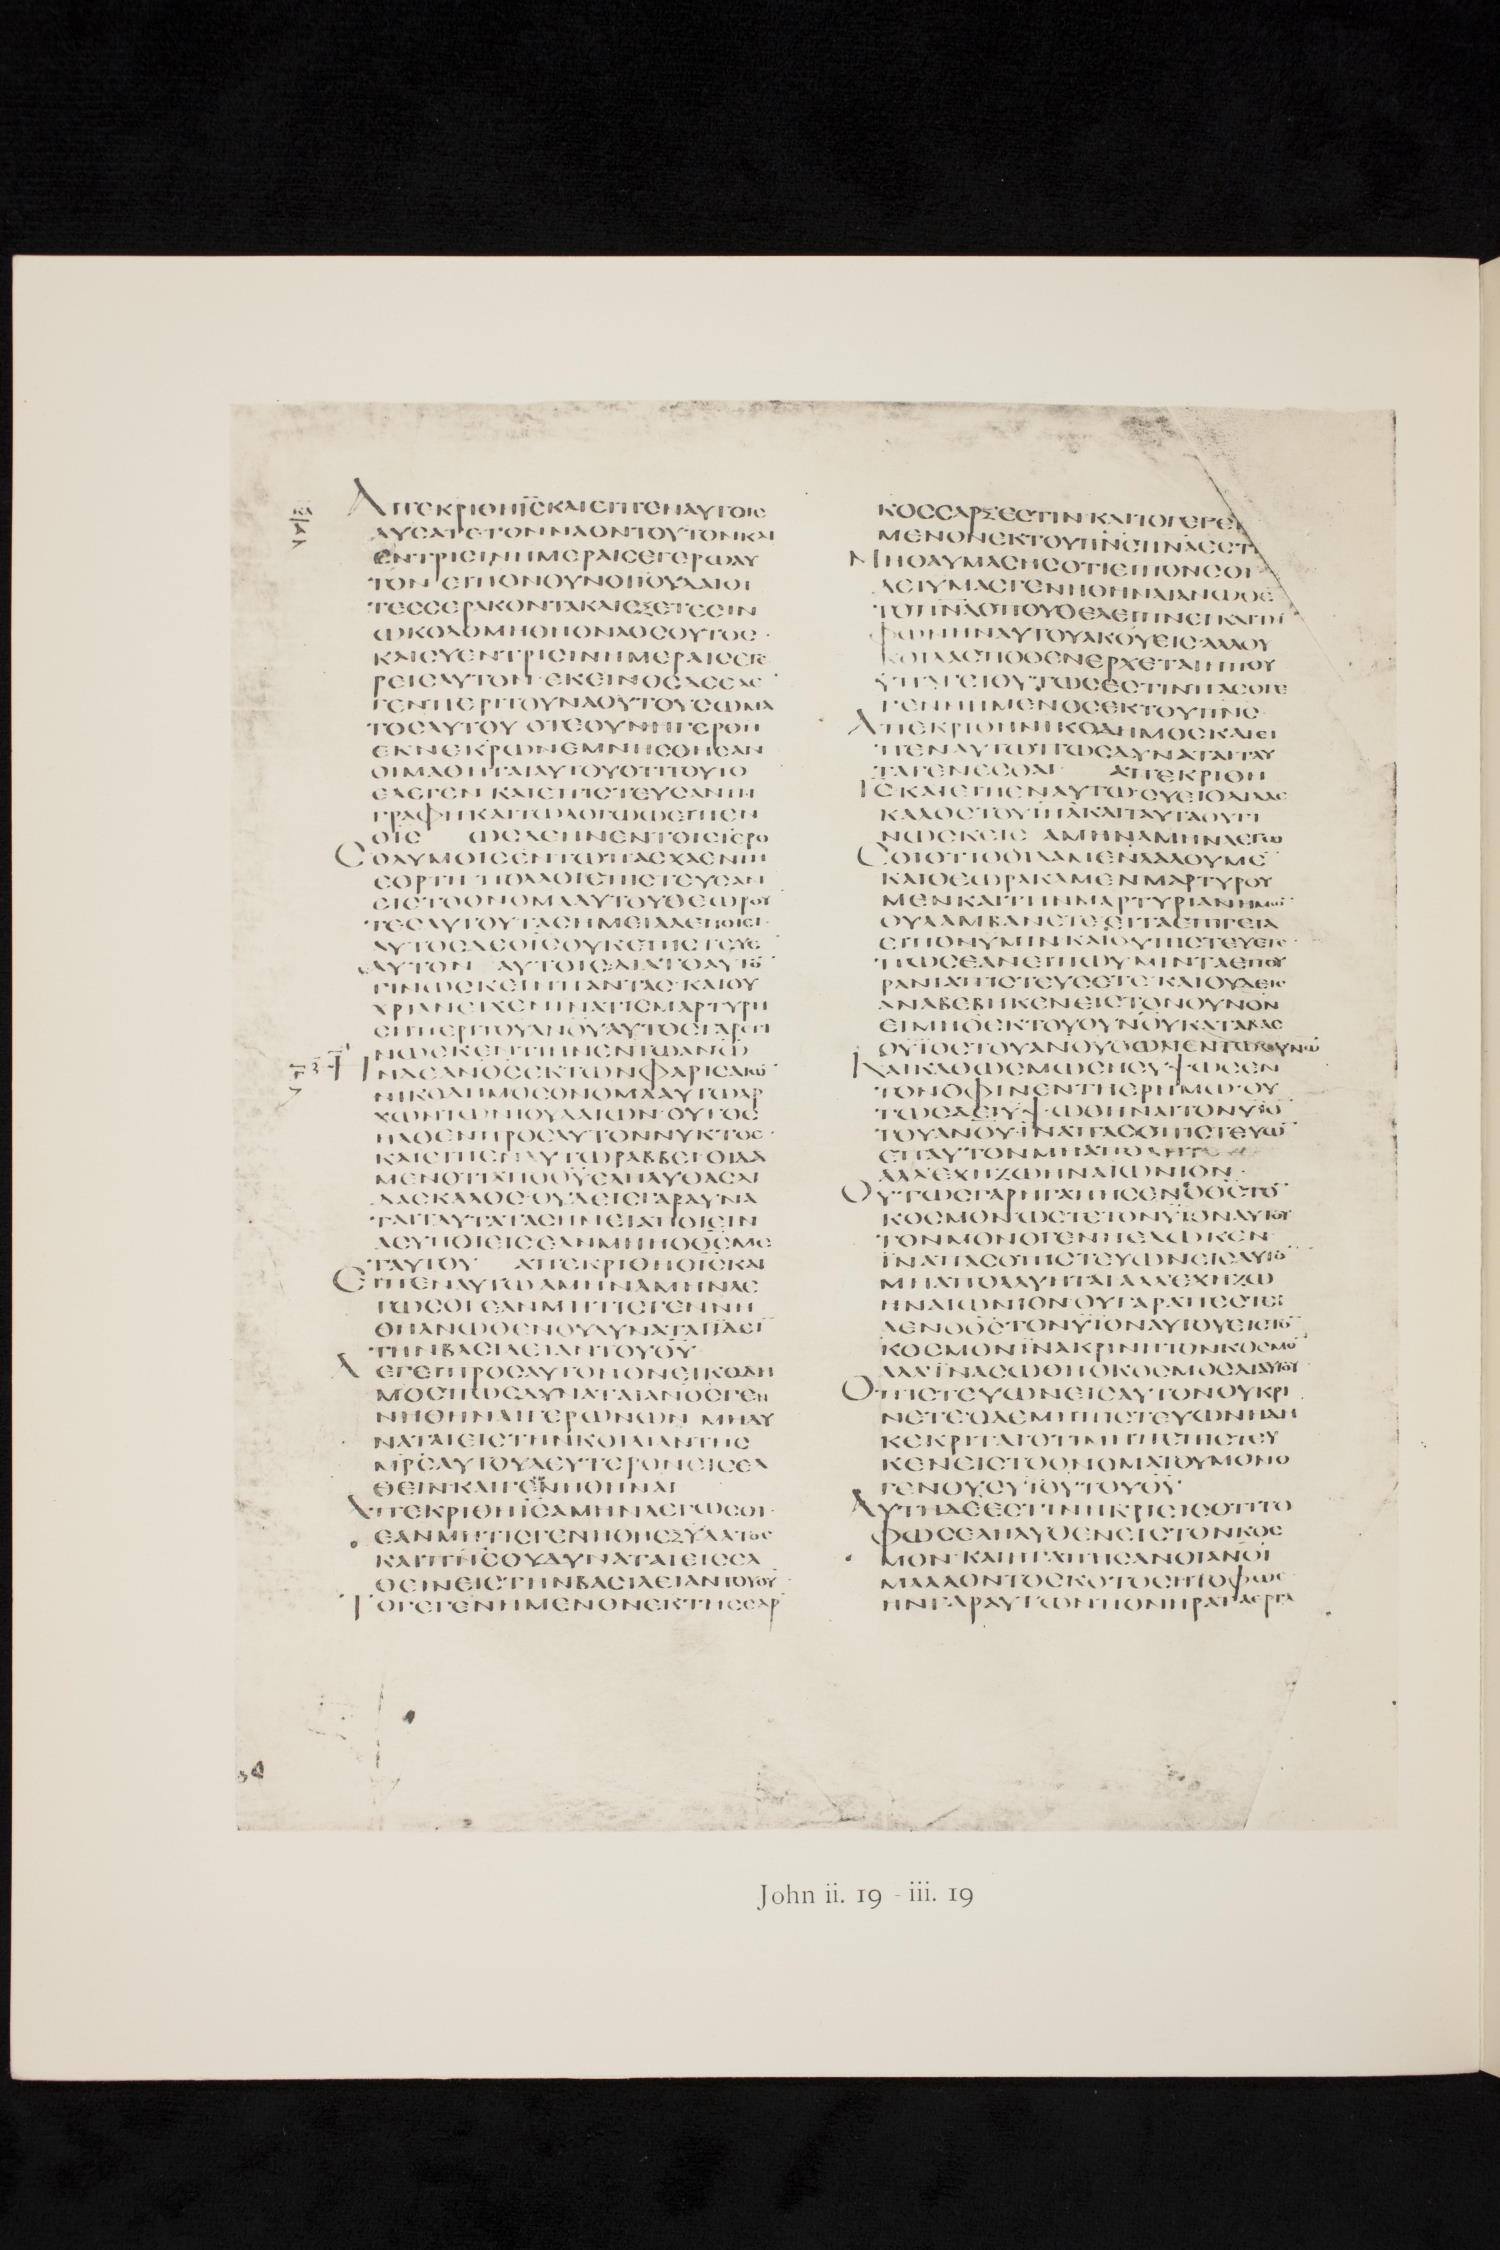 ΑΠΕΚΡΙΘΗΙ̅Ϲ̅ΚΑΙΕΙΠΕΝΑΥΤΟΙϹ
ΛΥϹΑΤΕΤΟΝΝΑΟΝΤΟΥΤΟΝΚΑΙ
ΕΝΤΡΙϹΙΝΗΜΕΡΑΙϹΕΓΕΡΩΑΥ
ΤΟΝ ΕΙΠΟΝΟΥΝΟΙΪΟΥΔΑΙΟΙ
ΤΕϹϹΕΡΑΚΟΝΤΑΚΑΙΕΞΕΤΕϹΙΝ
ΩΚΟΔΟΜΗΘΗΟΝΑΟϹΟΥΤΟϹ·
ΚΑΙϹΥΕΝΤΡΙϹΙΝΗΜΕΡΑΙϹΕΓΕ
ΡΕΙϹΑΥΤΟΝ·ΕΚΕΙΝΟϹΔΕΕΛΕ
ΓΕΝΠΕΡΙΤΟΥΝΑΟΥΤΟΥϹΩΜΑ
ΤΟϹΑΥΤΟΥ ΟΤΕΟΥΝΗΓΕΡΘΗ
ΕΚΝΕΚΡΩΝΕΜΝΗϹΘΗϹΑΝ
ΟΙΜΑΘΗΤΑΙΑΥΤΟΥΟΤΙΤΟΥΤΟ
ΕΛΕΓΕΝ ΚΑΙΕΠΙϹΤΕΥϹΑΝΤΗ
ΓΡΑΦΗΚΑΙΤΩΛΟΓΩΩΕΙΠΕΝ
ΟΙ̅Ϲ̅ ΩϹΔΕΗΝΕΝΤΟΙϹΙΕΡΟ
ϹΟΛΥΜΟΙϹΕΝΤΩΠΑϹΧΑΕΝΤΗ
ΕΟΡΤΗ ΠΟΛΛΟΙΕΠΙϹΤΕΥϹΑΝ
ΕΙϹΤΟΟΝΟΜΑΑΥΤΟΥΘΕΩΡΟΥ
ΤΕϹΑΥΤΟΥΤΑϹΗΜΕΙΑΑΕΠΟΙΕΙ·
ΑΥΤΟϹΔΕΟΙ̅Ϲ̅ΟΥΚΕΠΙϹΤΕΥΕ̅
ΕΑΥΤΟΝ ΑΥΤΟΙϹΔΙΑΤΟΑΥΤΟ̅
ΓΙΝΩϹΚΕΙΝΠΑΝΤΑϹ·ΚΑΙΟΥ
ΧΡΙΑΝΕΙΧΕΝΙΝΑΤΙϹΜΑΡΤΥΡΗ
ϹΗΠΕΡΙΤΟΥΑ̅Ν̅Ο̅Υ̅ΑΥΤΟϹΓΑΡΕΓΙ
ΝΩϹΚΕΝΤΙΗΝΕΝΤΩΑ̅Ν̅Ω̅
ΗΝΔΕΑ̅Ν̅Ο̅Ϲ̅ΕΚΤΩΝΦΑΡΙϹΑΙΩ̅
ΝΙΚΟΔΗΜΟϹΟΝΟΜΑΑΥΤΩΑΡ
ΧΩΝΤΩΝΙΟΥΔΑΙΩΝ·ΟΥΤΟϹ
ΗΛΘΕΝΠΡΟϹΑΥΤΟΝΝΥΚΤΟϹ·
ΚΑΙΕΙΠΕΝΑΥΤΩΡΑΒΒΕΙΟΙΔΑ
ΜΕΝΟΤΙΑΠΟΘ̅Υ̅ΕΛΗΛΥΘΑϹΔΙ
ΔΑϹΚΑΛΟϹ·ΟΥΔΕΙϹΓΑΡΔΥΝΑ
ΤΑΙΤΑΥΤΑΤΑϹΗΜΕΙΑΠΟΙΕΙΝ
ΑϹΥΠΟΙΕΙϹΕΑΝΜΗΗΟΘ̅Ϲ̅ΜΕ
ΤΑΥΤΟΥ ΑΠΕΚΡΙΘΗΟΙ̅Ϲ̅ΚΑΙ
ΕΙΠΕΝΑΥΤΩΑΜΗΝΑΜΗΝΛΕ
ΓΩϹΟΙΕΑΝΜΗΤΙϹΓΕΝΝΗ
ΘΗΑΝΩΘΕΝΟΥΔΥΝΑΤΑΙΪΔΕΙ̅
ΤΗΝΒΑϹΙΛΕΙΑΝΤΟΥΘ̅Υ̅
ΛΕΓΕΙΠΡΟϹΑΥΤΟΝΟΝΕΙΚΟΔΗ
ΜΟϹΠΩϹΔΥΝΑΤΑΙΑ̅Ν̅Ο̅Ϲ̅ΓΕΝ
ΝΗΘΗΝΑΙΓΕΡΩΝΩΝ ΜΗΔΥ
ΝΑΤΑΙΕΙϹΤΗΝΚΟΙΛΙΑΝΤΗϹ
Μ̅Ρ̅Ϲ̅ΑΥΤΟΥΔΕΥΤΕΡΟΝΕΙϹΕΛ
ΘΕΙΝΚΑΙΓΕΝΝΗΘΗΝΑΙ
ΑΠΕΚΡΙΘΗΙ̅Ϲ̅ΑΜΗΝΛΕΓΩϹΟΙ·
ΕΑΝΜΗΤΙϹΓΕΝΗΘΗΕΞΥΔΑΤΟϹ
ΚΑΙΠ̅Ν̅Ϲ̅ΟΥΔΥΝΑΤΑΙΕΙϹΕΛ
ΘΕΙΝΕΙϹΤΗΝΒΑϹΙΛΕΙΑΝΤΟΥΘ̅Υ̅·
ΤΟΓΕΓΕΝΗΜΕΝΟΝΕΚΤΗϹϹΑΡ
ΚΟϹϹΑΡΞΕϹΤΙΝ·ΚΑΙΤΟΓΕΓΕΝ
ΜΕΝΟΝΕΚΤΟΥΠ̅Ν̅Ϲ̅Π̅Ν̅Α̅ΕϹΤΙ
ΜΗΘΑΥΜΑϹΗϹΟΤΙΕΙΠΟΝϹΟΙ
ΔΕΙΥΜΑϹΓΕΝΗΘΗΝΑΙΑΝΩΘΕ̅
ΤΟΠ̅Ν̅Α̅ΟΠΟΥΘΕΛΕΙΠΝΕΙΚΑΙΤΗ̅
ΦΩΝΗΝΑΥΤΟΥΑΚΟΥΕΙϹ·ΑΛΛΟΥ
ΚΟΙΔΑϹΠΟΘΕΝΕΡΧΕΤΑΙΗΠΟΥ
ΥΠΑΓΕΙΟΥΤΩϹΕϹΤΙΝΠΑϹΟΓΕ
ΓΕΝΝΗΜΕΝΟϹΕΚΤΟΥΠ̅Ν̅Ϲ̅·
ΑΠΕΚΡΙΘΗΝΙΚΟΔΗΜΟϹΚΑΙΕΙ
ΠΕΝΑΥΤΩΠΩϹΔΥΝΑΤΑΙΤΑΥ
ΤΑΓΕΝΕϹΘΑΙ ΑΠΕΚΡΙΘΗ
Ι̅Ϲ̅ΚΑΙΕΙΠΕΝΑΥΤΩϹΥΕΙΟΔΙΔΑϹ
ΚΑΛΟϹΤΟΥΙ̅Η̅Λ̅ΚΑΙΤΑΥΤΑΟΥΓΙ
ΝΩϹΚΕΙϹ ΑΜΗΝΑΜΗΝΛΕΓΩ
ϹΟΙΟΤΙΟΟΙΔΑΜΕΝΛΑΛΟΥΜΕ̅
ΚΑΙΟΕΩΡΑΚΑΜΕΝΜΑΡΤΥΡΟΥ
ΜΕΝΚΑΙΤΗΝΜΑΡΤΥΡΙΑΝΗΜΩ̅
ΟΥΛΑΜΒΑΝΕΤΕ·ΕΙΤΑΕΠΙΓΕΙΑ
ΕΙΠΟΝΥΜΙΝΚΑΙΟΥΠΙϹΤΕΥΕΤΕ·
ΠΩϹΕΑΝΕΙΠΩΥΜΙΝΤΑΕΠΟΥ
ΡΑΝΙΑΠΙϹΤΕΥϹΕΤΕ·ΚΑΙΟΥΔΕΙϹ
ΑΝΑΒΕΒΗΚΕΝΕΙϹΤΟΝΟΥΝΟΝ
ΕΙΜΗΟΕΚΤΟΥΟΥΝΟΥΚΑΤΑΒΑϹ
ΟΥΪΟϹΤΟΥΑ̅Ν̅Ο̅Υ̅ΟΩΝΕΝΤΩΟΥΝΩ
ΚΑΙΚΑΘΩϹΜΩϹΗϹΥΨΩϹΕΝ
ΤΟΝΟΦΙΝΕΝΤΗΕΡΗΜΩ·ΟΥ
ΤΩϹΔΕΙΥΨΩΘΗΝΑΙΤΟΝΥΪΟ̅
ΤΟΥΑ̅Ν̅Ο̅Υ̅·ΪΝΑΠΑϹΟΠΙϹΤΕΥΩ̅
ΕΠΑΥΤΟΝΜΗΑΠΟΛΗΤΑΙ
ΑΛΛΕΧΗΖΩΗΝΑΙΩΝΙΟΝ·
ΟΥΤΩϹΓΑΡΗΓΑΠΗϹΕΝΟΘ̅Ϲ̅ΤΟ̅
ΚΟϹΜΟΝΩϹΤΕΤΟΝΥΪΟΝΑΥΤΟΥ
ΤΟΝΜΟΝΟΓΕΝΗΕΔΩΚΕΝ
ΪΝΑΠΑϹΟΠΙϹΤΕΥΩΝΕΙϹΑΥΤΟ̅
ΜΗΑΠΟΛΛΥΗΤΑΙΑΛΛΕΧΗΖΩ
ΗΝΑΙΩΝΙΟΝ·ΟΥΓΑΡΑΠΕϹΤΕΙ
ΛΕΝΟΘ̅Ϲ̅ΤΟΝΥΪΟΝΑΥΤΟΥΕΙϹΤΟ̅
ΚΟϹΜΟΝΪΝΑΚΡΙΝΗΤΟΝΚΟϹΜΟ̅
ΑΛΛΙΝΑϹΩΘΗΟΚΟϹΜΟϹΔΙΑΥΤΟΥ·
ΟΠΙϹΤΕΥΩΝΕΙϹΑΥΤΟΝΟΥΚΡΙ
ΝΕΤΕΟΔΕΜΗΠΙϹΤΕΥΩΝΗΔΗ
ΚΕΚΡΙΤΑΙΟΤΙΜΗΠΕΠΙϹΤΕΥ
ΚΕΝΕΙϹΤΟΟΝΟΜΑΤΟΥΜΟΝΟ
ΓΕΝΟΥϹΥΪΟΥΤΟΥΘ̅Υ̅·
ΑΥΤΗΔΕΕϹΤΙΝΗΚΡΙϹΙϹΟΤΙΤΟ
ΦΩϹΕΛΗΛΥΘΕΝΕΙϹΤΟΝΚΟϹ
ΜΟΝ·ΚΑΙΗΓΑΠΗϹΑΝΟΙΑ̅Ν̅Ο̅Ι̅
ΜΑΛΛΟΝΤΟϹΚΟΤΟϹΗΤΟΦΩϹ
ΗΝΓΑΡΑΥΤΩΝΠΟΝΗΡΑΤΑΕΡΓΑ
John ii. 19 - iii. 19